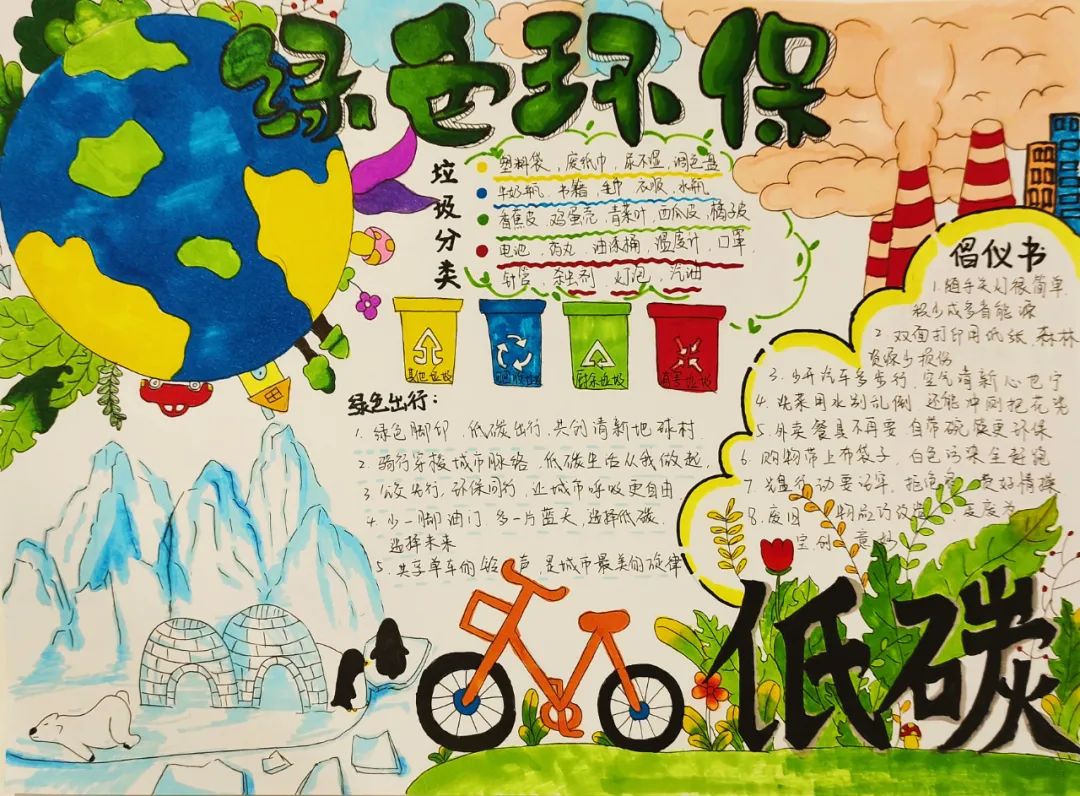 绿色环保
垃圾分类
塑料袋,废纸巾,尿不湿,调色盘
牛奶瓶,书籍,毛巾,衣服,水瓶
香蕉皮,鸡蛋壳,青菜叶,西瓜皮,橘子皮
电池,药丸,油漆桶,温度计,口罩,
针管,杀虫剂,灯泡,汽油
其他垃圾
可回收垃圾
厨余垃圾
有害垃圾
绿色出行:
1. 绿色脚印,低碳出行,共创清新地球村
2. 骑行穿梭城市脉络,低碳生活从我做起,
3. 公交先行,环保同行,让城市呼吸更自由
4. 少一脚油门,多一片蓝天,选择低碳,
选择未来
5. 共享单车的铃声,是城市最美的旋律
倡仪书
1. 随手关灯很简单,
积少成多省能源
2. 双面打印用低纸,森林
资源少损伤
3. 少开汽车多步行,空气清新心也宁
4. 洗菜用水别乱倒,还能冲厕把花浇
5. 外卖餐具不再要,自带碗筷更环保
6. 购物带上布袋子,白色污染全赶跑
7. 光盘行动要记牢,拒绝 更好情操
8. 废旧物品巧改造,变废为
宝创意
低碳